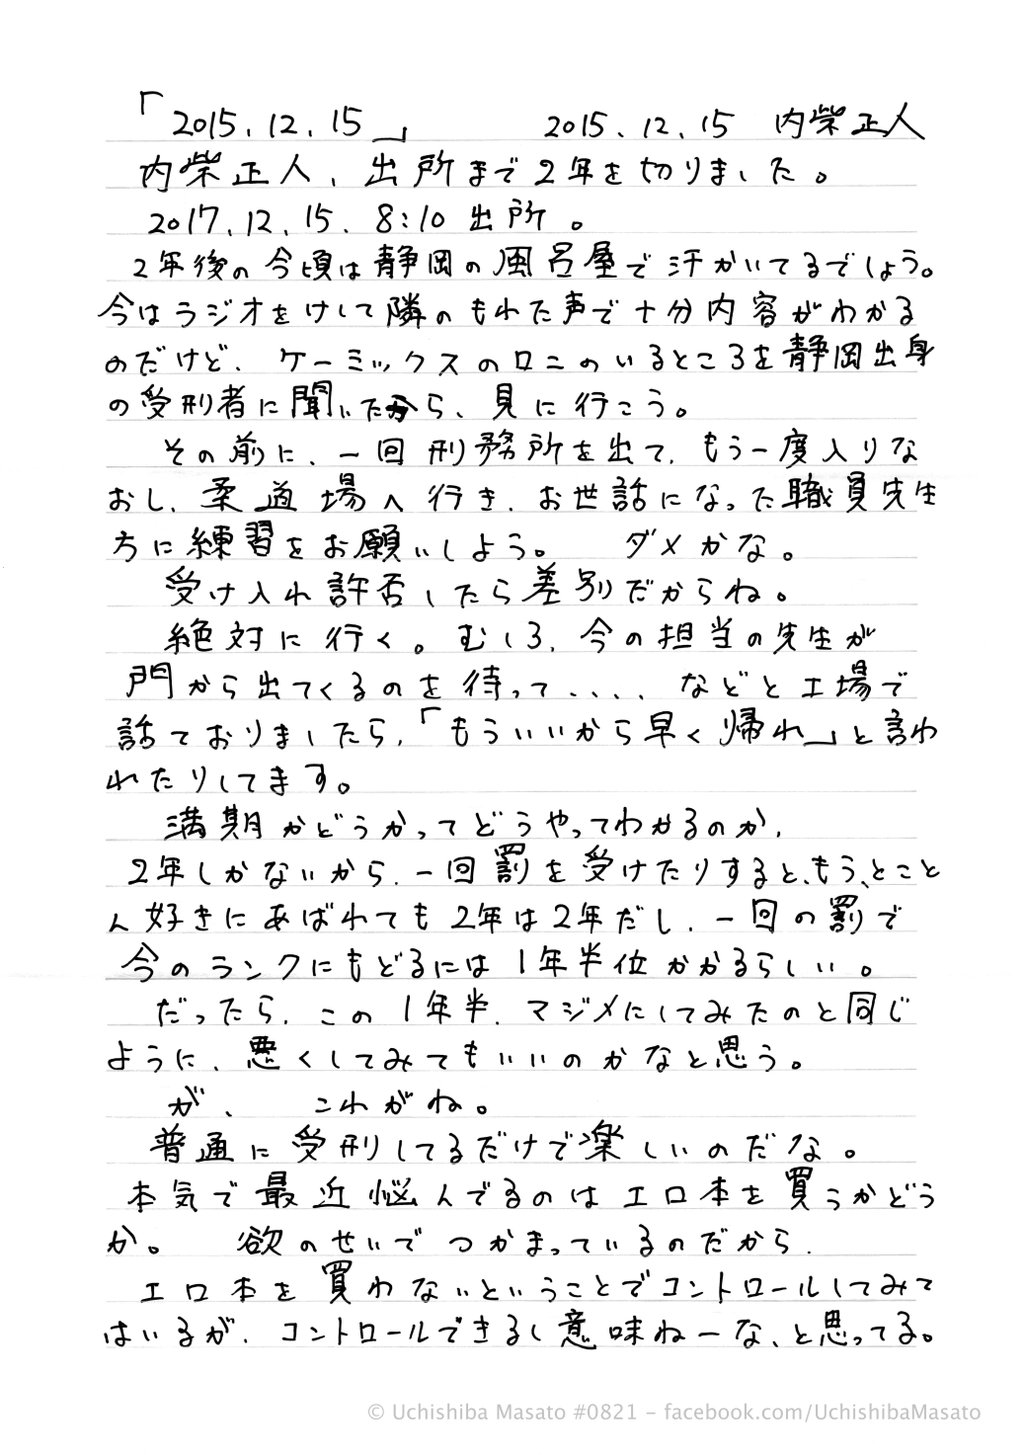 「2015.12.15」 2015.12.15 内柴正人
内柴正人、出所まで2年を切りました。
2017.12.15. 8:10 出所。
2年後の今頃は静岡の風呂屋で汗かいてるでしょう。
今はラジオをけして隣のもれた声で十分内容がわかる
のだけど、ケーミックスのロニのいるところを静岡出身
の受刑者に聞いたから、見に行こう。
その前に、一回刑務所を出て、もう一度入りな
おし、柔道場へ行き、お世話になった職員先生
方に練習をお願いしよう。 ダメかな。
受け入れ許否したら差別だからね。
絶対に行く。むしろ、今の担当の先生が
門から出てくるのを待って、、、、などと工場で
話ておりましたら、「もういいから早く帰れ」と言わ
れたりしてます。
満期かどうかってどうやってわかるのか、
2年しかないから、一回罰を受けたりすると、もう、とこと
ん好きにあばれても2年は2年だし、一回の罰で
今のランクにもどるには1年半位かかるらしい。
だったら、この1年半、マジメにしてみたのと同じ
ように、悪くしてみてもいいのかなと思う。
が、 これがね。
普通に受刑してるだけで楽しいのだな。
本気で最近悩んでるのはエロ本を買うかどう
か。 欲のせいでつかまっているのだから、
エロ本を買わないということでコントロールしてみて
はいるが、コントロールできるし意味ねーな、と思ってる。
© Uchishiba Masato #0821 – facebook.com/UchishibaMasato